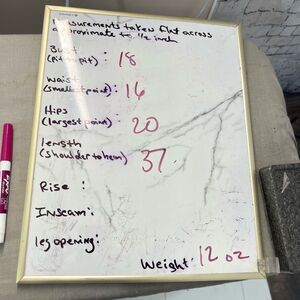 measurements taken flat across
approximate to 1/2 inch
Bust : 18
(pit to pit)
waist : 16
(smallest point)
Hips 20
(largest point)
length 37.
(shoulder to hem)
Rise :
Inseam :
leg opening:
Weight: 12 oz
expo